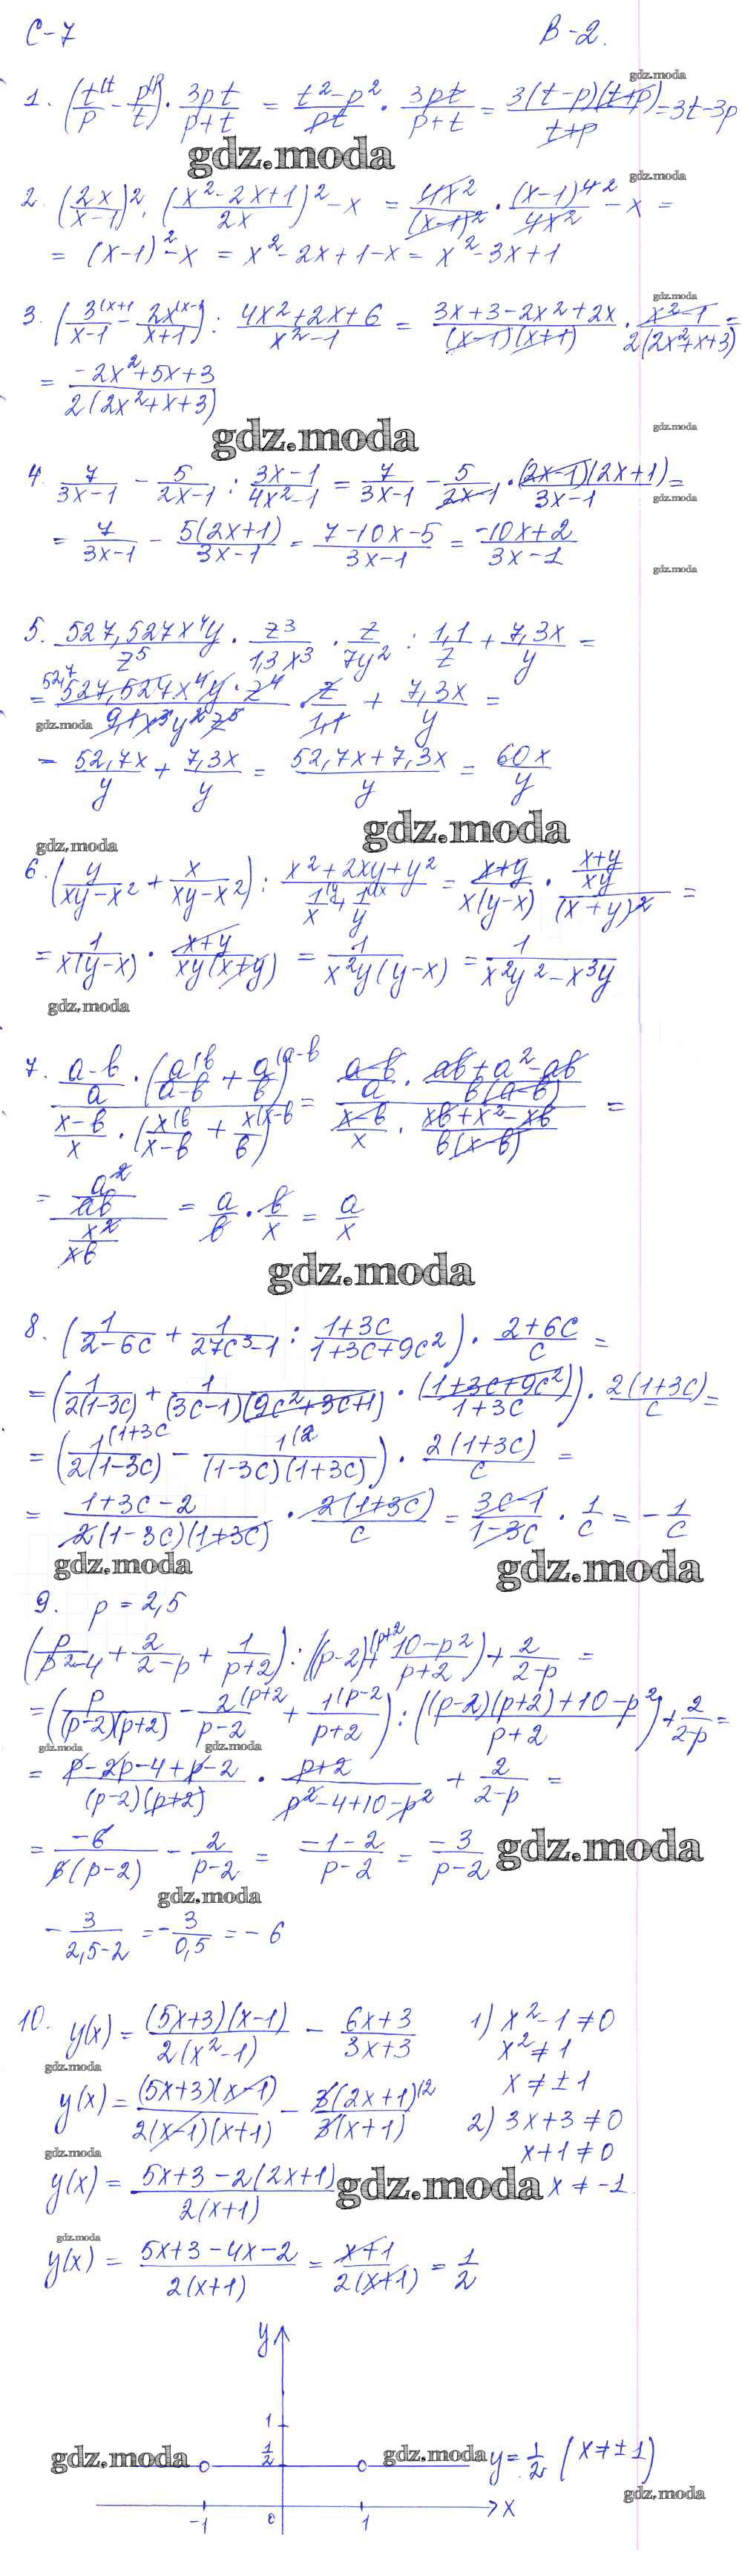 С-7 В-2.
gdz.moda
1. (t^(t/p - p^(p/t) · 3pt/(p+t) = (t²-p²)/pt · 3pt/(p+t) = 3(t-p)(t+p)/(t+p) = 3t-3p
gdz.moda
gdz.moda
2. (2x/(x-1))² · ((x²-2x+1)/2x)² - x = 4x²/(x-1)² · (x-1)^4 2/4x² - x =
= (x-1)² - x = x²-2x+1-x = x²-3x+1
gdz.moda
3. (3(x+1/(x-1) - 2x(x-1/(x+1)) : (4x²+2x+6)/(x²-1) = (3x+3-2x²+2x)/((x-1)(x+1)) · (x²-1)/(2(2x²+x+3)) =
= (-2x²+5x+3)/(2(2x²+x+3))
gdz.moda
gdz.moda
4. 7/(3x-1) - 5/(2x-1) : (3x-1)/(4x²-1) = 7/(3x-1) - 5/(2x-1) · (2x-1)(2x+1)/(3x-1) =
gdz.moda
= 7/(3x-1) - 5(2x+1)/(3x-1) = (7-10x-5)/(3x-1) = (-10x+2)/(3x-1)
gdz.moda
5. 527,527x⁴y/z⁵ · z³/1,3x³ · z/7y² : 1,1/z + 7,3x/y =
52,7
= 527,527x⁴y·z⁴/9,1x³y²z⁵ · z/1,1 + 7,3x/y =
gdz.moda
= 52,7x/y + 7,3x/y = (52,7x+7,3x)/y = 60x/y
gdz.moda
gdz.moda
6. (y/(xy-x²) + x/(xy-x²)) : (x²+2xy+y²)/(1(y/x + 1(x/y) = (x+y)/(x(y-x)) · ((x+y)/xy)/(x+y)² =
= 1/(x(y-x)) · (x+y)/(xy(x+y)) = 1/(x²y(y-x)) = 1/(x²y²-x³y)
gdz.moda
7. ((a-b)/a · (a(b/(a-b) + a(a-b/b))/((x-b)/x · (x(b/(x-b) + x(x-b/b)) = ((a-b)/a · (ab+a²-ab)/(b(a-b)))/((x-b)/x · (xb+x²-xb)/(b(x-b))) =
= (a²/ab)/(x²/xb) = a/b · b/x = a/x
gdz.moda
8. (1/(2-6c) + 1/(27c³-1) : (1+3c)/(1+3c+9c²)) · (2+6c)/c =
= (1/(2(1-3c)) + 1/((3c-1)(9c²+3c+1)) · (1+3c+9c²)/(1+3c)) · 2(1+3c)/c =
= (1(1+3c/(2(1-3c)) - 1(2/((1-3c)(1+3c))) · 2(1+3c)/c =
= (1+3c-2)/(2(1-3c)(1+3c)) · 2(1+3c)/c = (3c-1)/(1-3c) · 1/c = -1/c
gdz.moda
gdz.moda
9. p = 2,5
(p/(p²-4) + 2/(2-p) + 1/(p+2)) : ((p-2)(p+2 + (10-p²)/(p+2)) + 2/(2-p) =
= (p/((p-2)(p+2)) - 2(p+2/(p-2) + 1(p-2/(p+2)) : (((p-2)(p+2)+10-p²)/(p+2)) + 2/(2-p) =
gdz.moda gdz.moda
= (p-2p-4+p-2)/((p-2)(p+2)) · (p+2)/(p²-4+10-p²) + 2/(2-p) =
= -6/(6(p-2)) - 2/(p-2) = (-1-2)/(p-2) = -3/(p-2)
gdz.moda
gdz.moda
-3/(2,5-2) = -3/0,5 = -6
10. y(x) = (5x+3)(x-1)/(2(x²-1)) - (6x+3)/(3x+3) 1) x²-1≠0
x²≠1
gdz.moda
y(x) = (5x+3)(x-1)/(2(x-1)(x+1)) - 3(2x+1)(2/(3(x+1)) x≠±1
2) 3x+3≠0
gdz.moda
x+1≠0
y(x) = (5x+3-2(2x+1))/(2(x+1)) x≠-1
gdz.moda
gdz.moda
y(x) = (5x+3-4x-2)/(2(x+1)) = (x+1)/(2(x+1)) = 1/2
y
1
1/2
gdz.moda
gdz.moda
y = 1/2 (x≠±1)
gdz.moda
-1 0 1 x